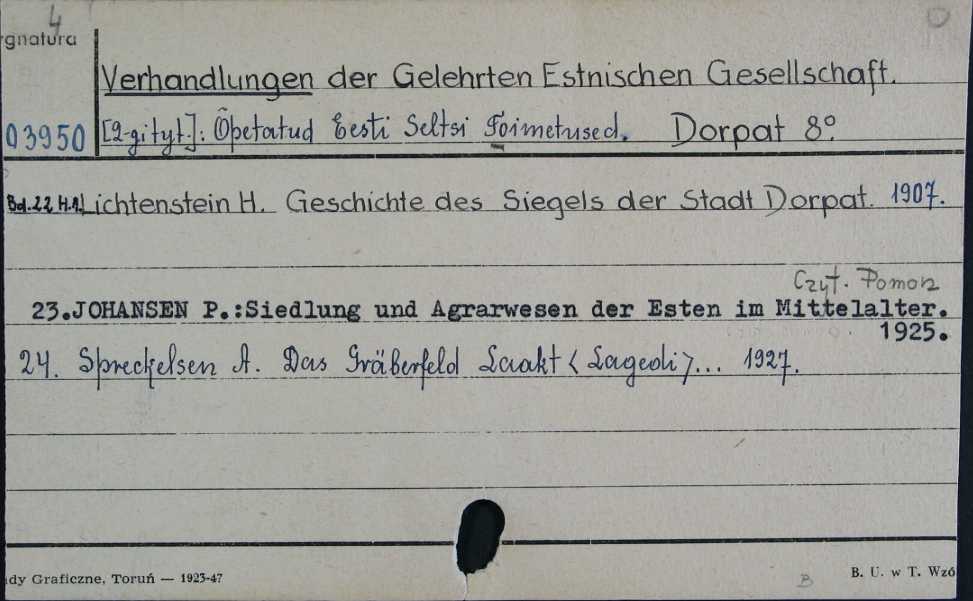 4
gnatura
Verhandlungen der Gelehrten Estnischen Gesellschaft.
03950 [2-gi tyt.]: Õpetatud Eesti Seltsi Toimetused. Dorpat 8º
Bd.22 H.1 Lichtenstein H. Geschichte des Siegels der Stadt Dorpat. 1907.
Czyt. Pomorz
23.JOHANSEN P.:Siedlung und Agrarwesen der Esten im Mittelalter.
1925.
24. Spreckelsen A. Das Gräberfeld Laakt <Lagedi>... 1927.
dy Graficzne, Toruń — 1923-47
B
B. U. w T. Wzó